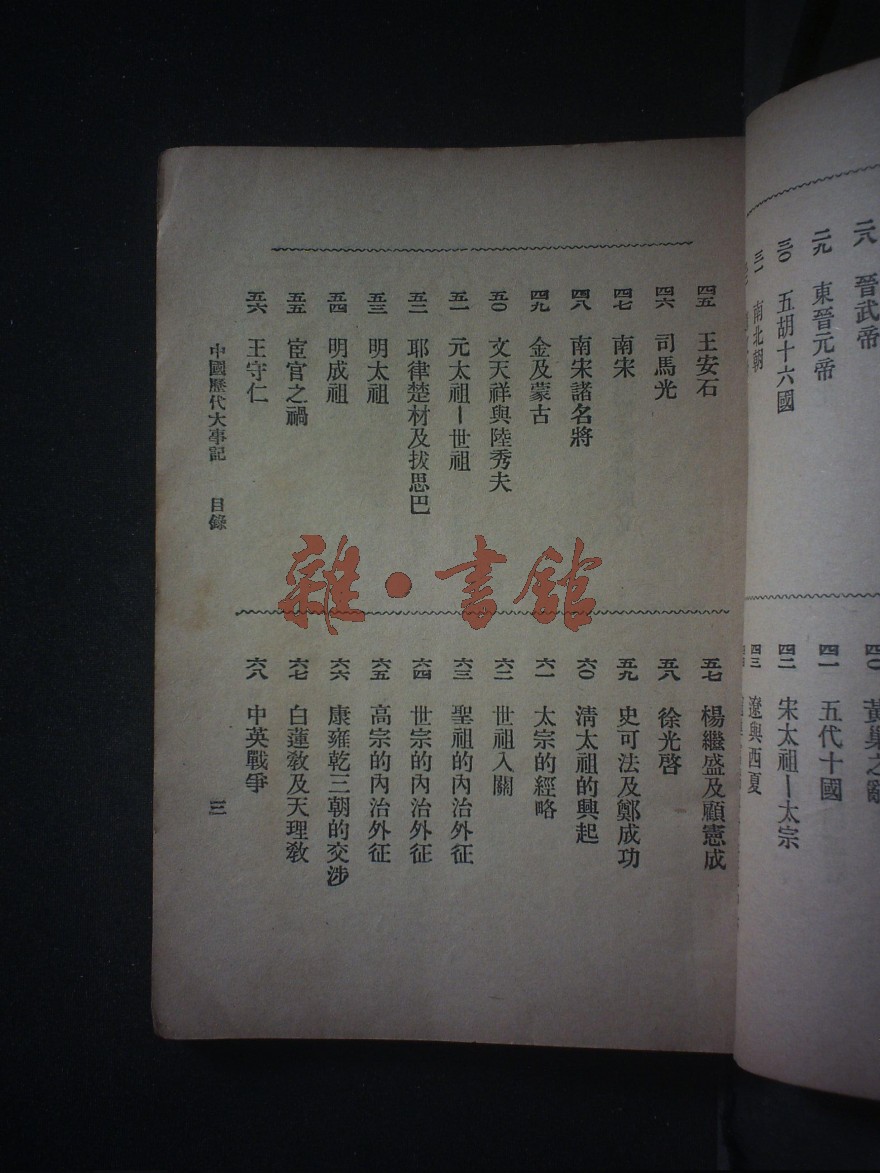 二八 晉武帝
二九 東晉元帝
三〇 五胡十六國
三一 南北朝
四〇 黃巢之亂
四一 五代十國
四二 宋太祖—太宗
四三 遼與西夏
四五 王安石
四六 司馬光
四七 南宋
四八 南宋諸名將
四九 金及蒙古
五〇 文天祥與陸秀夫
五一 元太祖—世祖
五二 耶律楚材及拔思巴
五三 明太祖
五四 明成祖
五五 宦官之禍
五六 王守仁
五七 楊繼盛及顧憲成
五八 徐光啓
五九 史可法及鄭成功
六〇 清太祖的興起
六一 太宗的經略
六二 世祖入關
六三 聖祖的內治外征
六四 世宗的內治外征
六五 高宗的內治外征
六六 康雍乾三朝的交涉
六七 白蓮教及天理教
六八 中英戰爭
中國歷代大事記 目錄 三
雜·書館